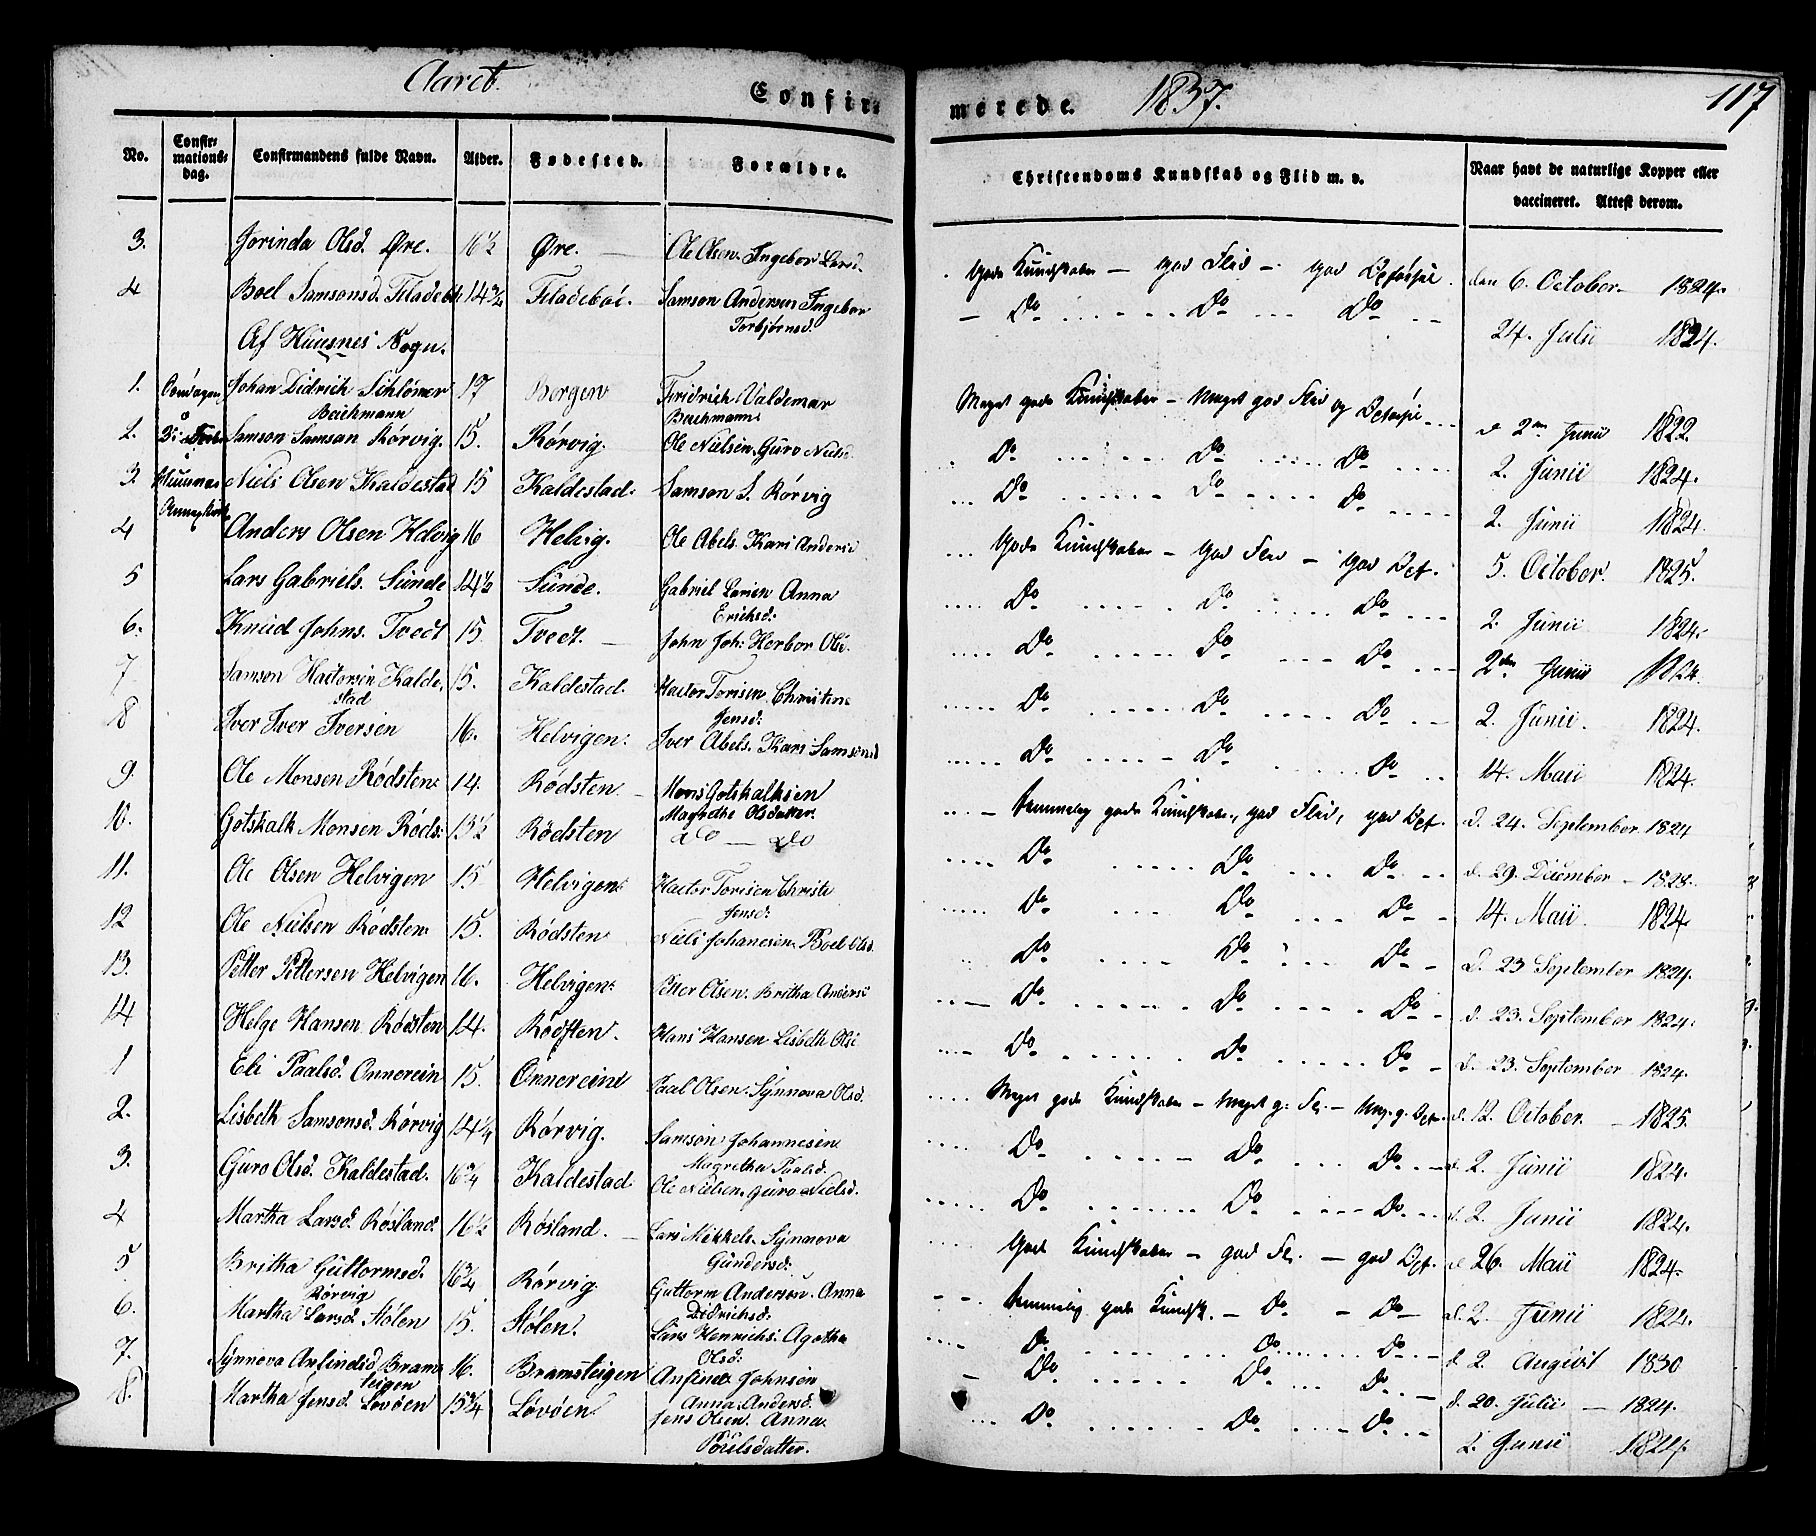 Aaret. Confir- merede. 1837. 117
No. Confir-mations-dag. Confirmandens fulde Navn. Alder. Fødested. Forældre. Christendoms Kundskab og Flid m. v. Naar havt de naturlige Kopper eller vaccineret. Attest derom.
3. Jorinda Olsd. Øre. 16½ Øre. Ole Olsen. Ingebor Larsd. Gode Kundskaber — god Flid — god Opførsel. den 6. October 1824.
4 Boel Samsonsd. 14¾ Samson Andersen Ingebor Torbjørnsd. Do Do Do 24. Julii 1824.
Af Huusnes Sogn.
1. Johan Didrich Schlömer Beichmann 17 Bergen Fridrich Valdemar Beichmann Meget gode Kundskaber — Meget god Flid og Opførsel d 2den Junii 1822.
2. Samson Samson Rörvig. 15. Rörvig. Ole Nielsen. Guro Nielsd. Do Do Do 2. Junii 1824.
3. Niels Olsen Kaldestad 15 Kaldestad. Samson S. Rörvig Do Do Do 2. Junii 1824.
4 Anders Olsen Helvig 16 Helvig. Ole Abels. Kari Andersd Gode Kundskaber — god Flid — god Opf. 5. October. 1825.
5 Lars Gabriels. Sünde 14½ Sünde. Gabriel Larsen Anna Erichsd. Do Do Do 2. Junii 1824.
6. Knud Johns. Tvedt 15. Tvedt. John Joh: Herbor Ols. Do Do Do 2den Junii 1824.
7 Samson Hactorsen Kaldestad 15. Kaldestad. Hactor Torisen Christine Jensd: Do Do Do 2. Junii. 1824.
8 Iver Iver Iversen 16. Helvigen. Iver Abels. Kari Samsond Do Do Do 14. Maii 1824.
9. Ole Monsen Rödsten 14. Rödsten. Mons Gotskalksen Magrethe Olsdatter. temmelig gode Kundskaber, god Flid, god Opf. d. 24. September 1824
10. Gotskalk Monsen Röds: 13½ Rödsten do — do Do Do Do d. 29. December 1828.
11. Ole Olsen Helvigen 15 Helvigen Hactor Torisen Christi Jensd: Do Do Do 14. Maii. 1824
12 Ole Nielsen Rödsten 15. Rödsten Niels Johanesen. Boel Olsd. Do Do Do d. 23 September 1824.
13. Petter Pettersen Helvigen 16. Helvigen Petter Olsen. Britha Andersd Do Do Do d. 23. September 1824.
14 Helge Hansen Rödsten 14. Rödsten. Hans Hansen Lisbeth Ols Do Do Do d. 23. September 1824.
1 Eli Paalsd. Onnerein 15. Onnereim Paal Olsen. Synnova Olsd. Meget gode Kundskaber — Meget g. Fl. — Meg. g. Opf. d. 12. October 1825.
2. Lisbeth Samsonsd. Rörvig 14¼ Rörvig. Samson Johannesen Magretha Paalsd. Do Do Do d. 2. Junii 1824.
3. Guro Olsd. Kaldestad. 16¾ Kaldestad. Ole Nielsen. Guro Nielsd. Do Do Do d. 2. Junii 1824.
4 Martha Larsd. Røsland. 16½ Røsland. Lars Mikkels. Synnova Gundersd. God Kundskaber — god Fl. — god Opf. d. 26. Maii 1824.
5 Britha Guttormsd. Rörvig 16¾ Rörvig. Guttorm Anderson. Anna Didrichsd. temmelig gode Kundsk. — Do — Do — d. 2. Junii 1824.
6. Martha Larsd. Hølen 15. Hølen. Lars Henrichs. Agatha Olsd: Do Do Do d. 2 August 1830
7. Synnova Anfindsd Bramsteigen 16. Bramsteigen Anfind Johnsen Anna Andersd. Do Do Do d. 20. Julii — 1824.
8. Martha Jensd. Løvøen 15¾ Løvøen Jens Olsen. Anna Poulsdatter. Do Do Do 2. Junii 1824.